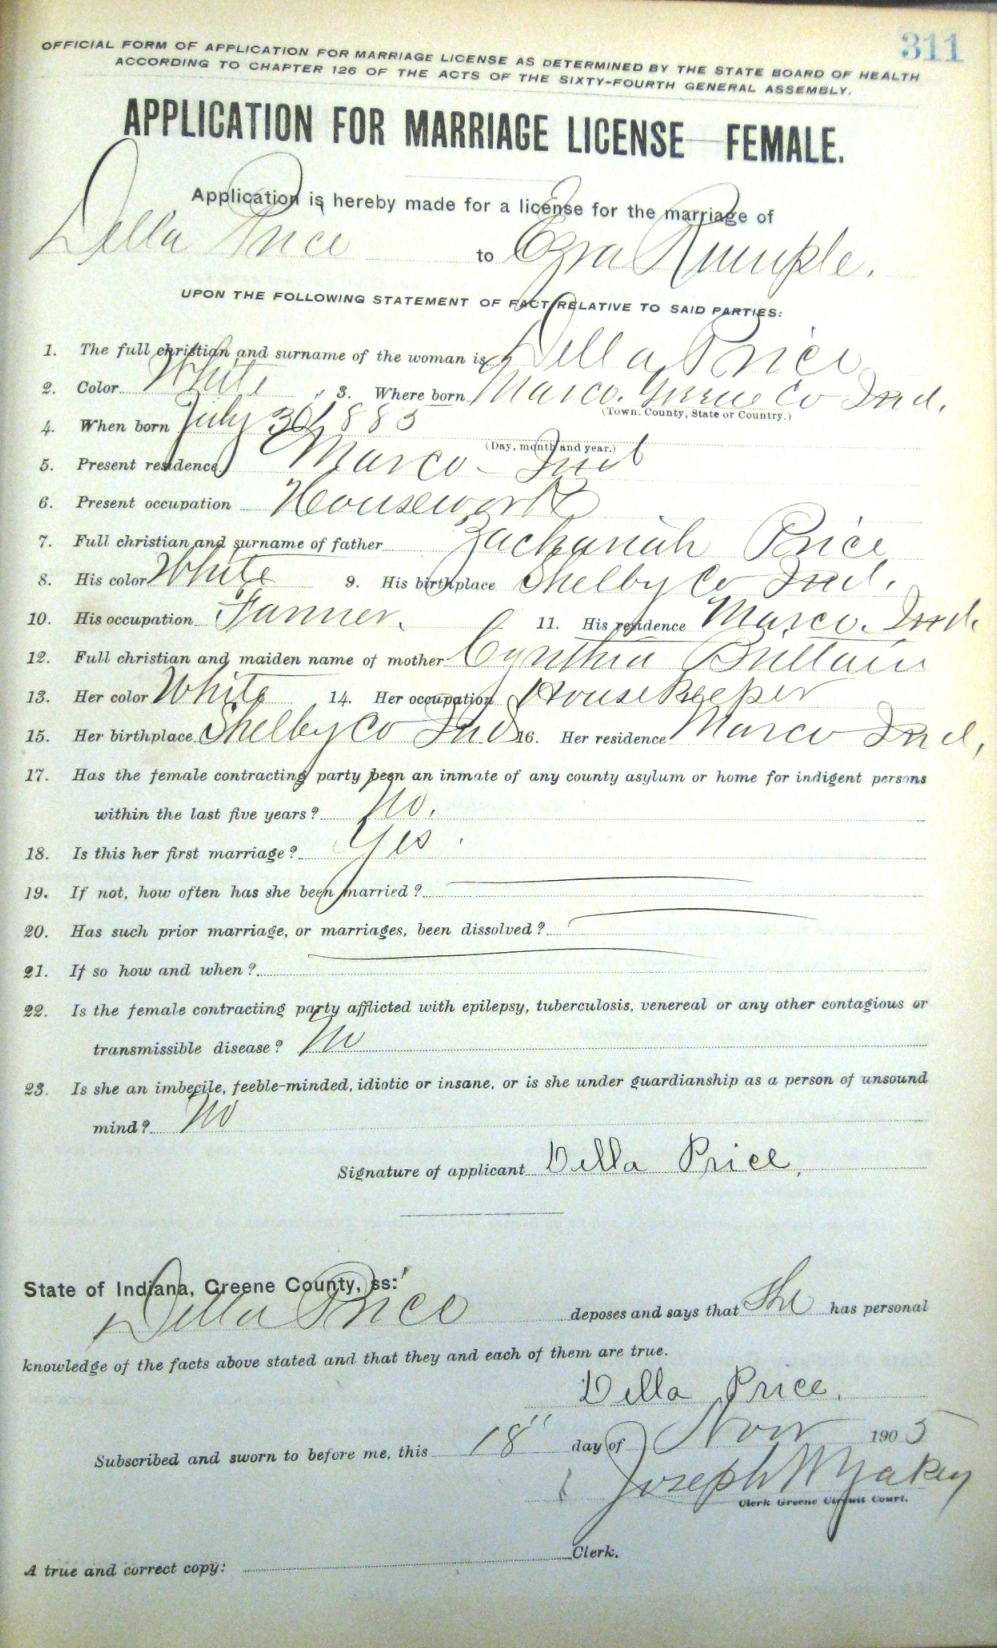 311
OFFICIAL FORM OF APPLICATION FOR MARRIAGE LICENSE AS DETERMINED BY THE STATE BOARD OF HEALTH
ACCORDING TO CHAPTER 126 OF THE ACTS OF THE SIXTY-FOURTH GENERAL ASSEMBLY.
APPLICATION FOR MARRIAGE LICENSE FEMALE.
Application is hereby made for a license for the marriage of
Della Price to Ezra Rumple.
UPON THE FOLLOWING STATEMENT OF FACT RELATIVE TO SAID PARTIES:
1. The full christian and surname of the woman is Della Price
2. Color White, 3. Where born Marco. Greene Co Ind.
(Town, County, State or Country.)
4. When born July 30 1885
(Day, month and year.)
5. Present residence Marco - Ind
6. Present occupation Housework
7. Full christian and surname of father Zachariah Price
8. His color White 9. His birthplace Shelby Co Ind.
10. His occupation Farmer. 11. His residence Marco. Ind.
12. Full christian and maiden name of mother Cynthia Brittain
13. Her color White 14. Her occupation Housekeeper
15. Her birthplace Shelby Co Ind 16. Her residence Marco Ind,
17. Has the female contracting party been an inmate of any county asylum or home for indigent persons
within the last five years? No.
18. Is this her first marriage? Yes.
19. If not, how often has she been married?
20. Has such prior marriage, or marriages, been dissolved?
21. If so how and when?
22. Is the female contracting party afflicted with epilepsy, tuberculosis, venereal or any other contagious or
transmissible disease? No
23. Is she an imbecile, feeble-minded, idiotic or insane, or is she under guardianship as a person of unsound
mind? No
Signature of applicant Della Price.
State of Indiana, Greene County, ss:
Della Price deposes and says that She has personal
knowledge of the facts above stated and that they and each of them are true.
Della Price.
Subscribed and sworn to before me, this 18" day of Nov 1905
Joseph W Yakey
Clerk Greene Circuit Court.
A true and correct copy: Clerk.